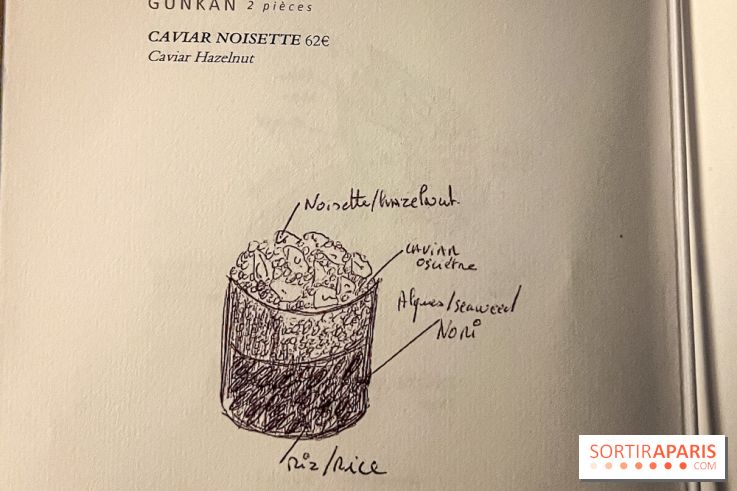 GUNKAN 2 pièces
CAVIAR NOISETTE 62€
Caviar Hazelnut
Noisette/hazelnut
CAVIAR
OSCIÈTRE
Algues/seaweed
NORI
RIZ/RICE
SORTIRAPARIS
.COM